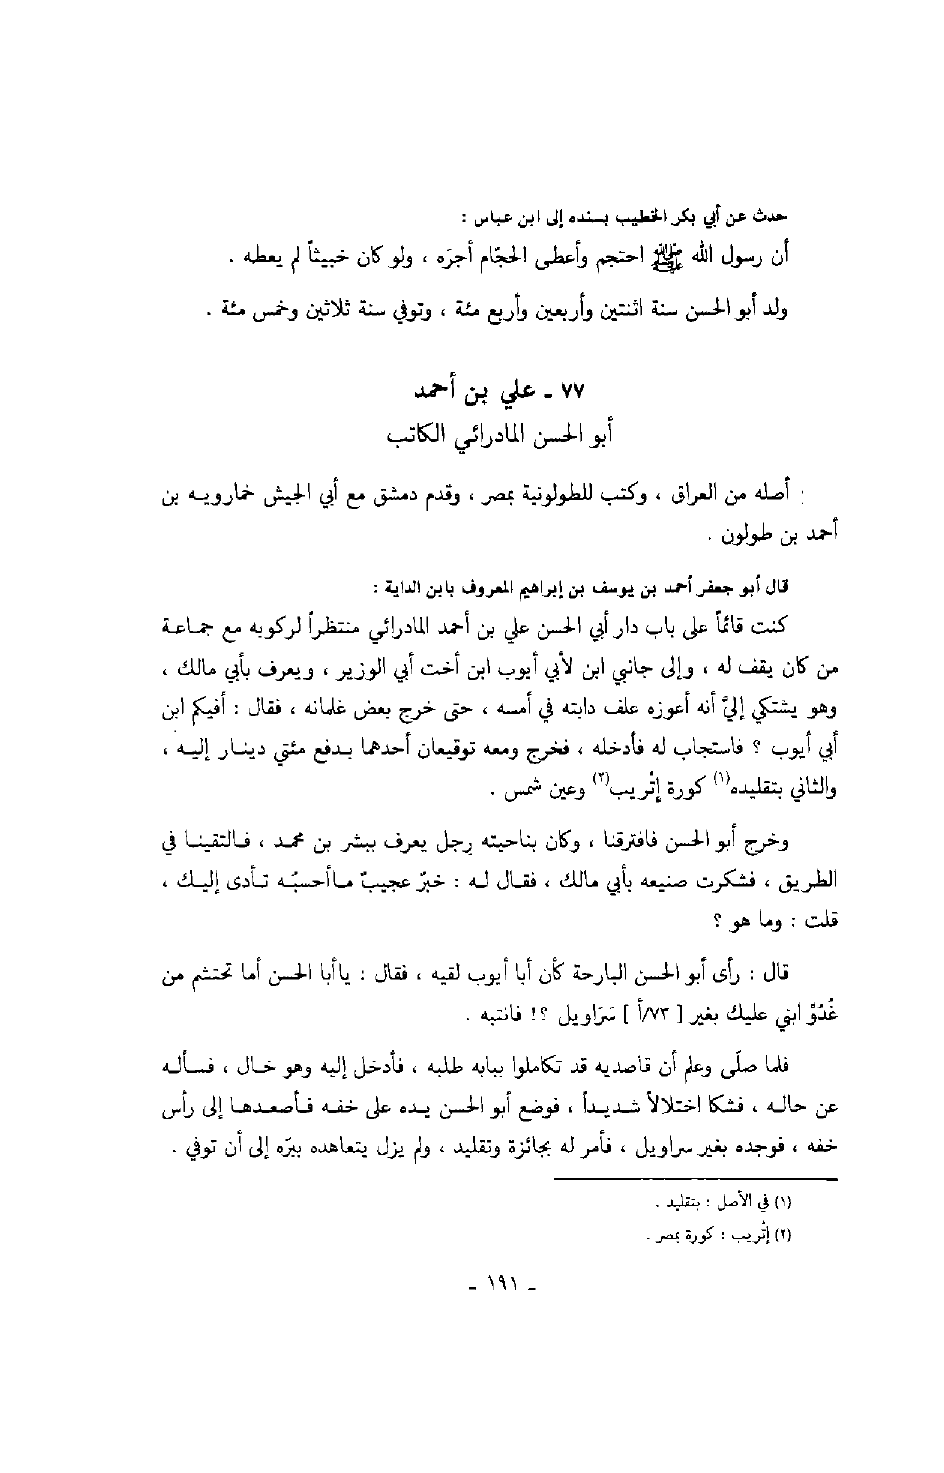 حدث عن أبي بكر الخطيب بسنده إلى ابن عباس :
أن رسول الله ﷺ احتجم وأعطى الحجّام أجرَه ، ولو كان خبيثاً لم يعطه .
ولد أبو الحسن سنة اثنتين وأربعين وأربع مئة ، وتوفي سنة ثلاثين وخمس مئة .
٧٧ ـ علي بن أحمد
أبو الحسن المادرائي الكاتب
أصله من العراق ، وكتب للطولونية بمصر ، وقدم دمشق مع أبي الجيش خمارويه بن
أحمد بن طولون .
قال أبو جعفر أحمد بن يوسف بن إبراهيم المعروف بابن الداية :
كنت قائماً على باب دار أبي الحسن علي بن أحمد المادرائي منتظراً لركوبه مع جماعة
من كان يقف له ، وإلى جانبي ابن لأبي أيوب ابن أخت أبي الوزير ، ويعرف بأبي مالك ،
وهو يشتكي إليَّ أنه أعوزه علف دابته في أمسه ، حتى خرج بعض غلمانه ، فقال : أفيكم ابن
أبي أيوب ؟ فاستجاب له فأدخله ، فخرج ومعه توقيعان أحدهما بدفع مئتي دينار إليه ،
والثاني بتقليده(١) كورة إتْريب(٢) وعين شمس .
وخرج أبو الحسن فافترقنا ، وكان بناحيته رجل يعرف ببشر بن محمد ، فالتقينا في
الطريق ، فشكرت صنيعه بأبي مالك ، فقال له : خبرٌ عجيبٌ ماأحسبُه تأدى إليك ،
قلت : وما هو ؟
قال : رأى أبو الحسن البارحة كأن أبا أيوب لقيه ، فقال : ياأبا الحسن أما تحتشم من
غُدُوِّ ابني عليك بغير [ ٧٣/أ ] سَرَاويل ؟! فانتبه .
فلما صلّى وعلم أن قاصديه قد تكاملوا ببابه طلبه ، فأدخل إليه وهو خال ، فسأله
عن حاله ، فشكا اختلالاً شديداً ، فوضع أبو الحسن يده على خفه فأصعدها إلى رأس
خفه ، فوجده بغير سراويل ، فأمر له بجائزة وتقليد ، ولم يزل يتعاهده ببرّه إلى أن توفي .
(١) في الأصل : بتقليد .
(٢) إتْريب : كورة بمصر .
ـ ١٩١ ـ